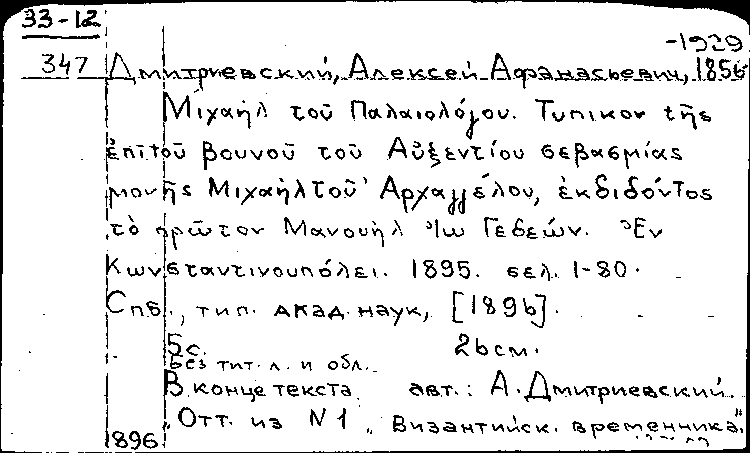 33-12
-1929
347 Дмитриевский, Алексей Афанасьевич, 1856
Μιχαὴλ τοῦ Παλαιολόγου. Τυπικον τῆς
ἐπὶ τοῦ βουνοῦ τοῦ Αὐξεντίου σεβασμίας
μονῆς Μιχαὴλ τοῦ Ἀρχαγγέλου, ἐκδιδόντος
τὸ πρῶτον Μανουὴλ Ἰω Γεδεών. Ἐν
Κωνσταντινουπόλει. 1895. σελ. 1-80.
Спб., тип. акад. наук, [1896].
5 с. 26 см.
Без тит. л. и обл.
В конце текста авт.: А. Дмитриевский.
"Отт. из N 1 „Византийск. временника".
1896